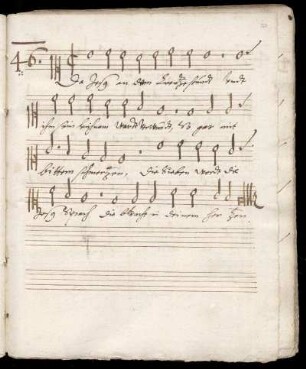 46.
Da Jesus an dem Creütze stundt, vndt
ihm sein leichnam wardt verwundt, so gar mit
bittern schmertzen, die sieben wordt die
Jesus sprach die betracht in deinem hertzen.